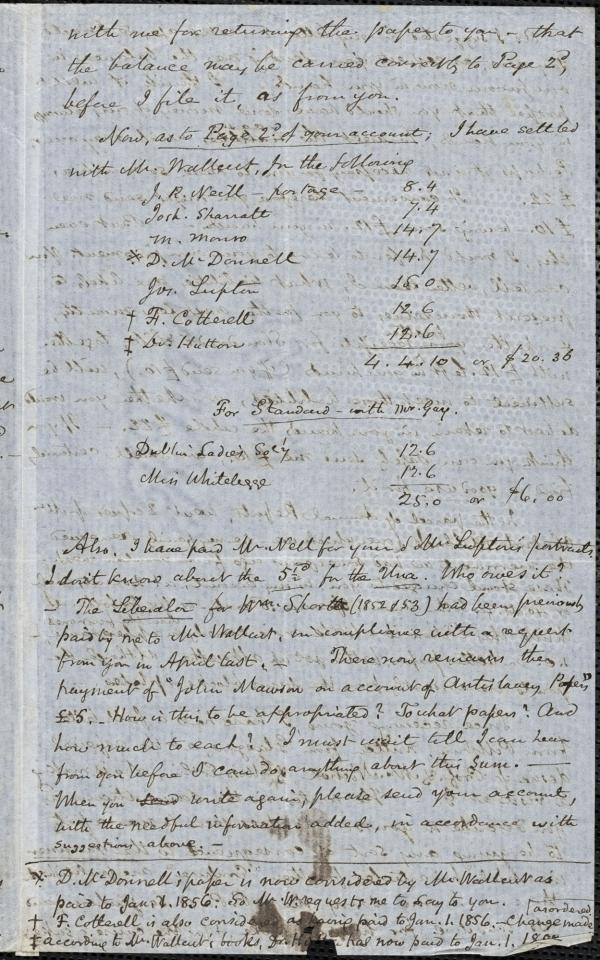 with me for returning the paper to you – that
the balance may be carried correctly to Page 2d,
before I file it, as from you.
Now, as to Page 2d of your account; I have settled
with Mr. Wallcut, for the following
J. R. Neill – postage – 8.4
Josh. Sharratt 7.4
M. Monro 14.7
※ D. McDonnell 14.7
Jos. Lupton 15.0
† F. Cotterell 12.6
‡ Dr. Hutton 12.6
4.4.10 or $20.36
For Standard – with Mr. Gay.
Dublin Ladies Socy 12.6
Miss Whitelegge 12.6
25.0 or $6.00
Also, I have paid Mr. Nell for your & Mr. Lupton's portraits.
I don't know about the 5/2d for the Una. Who owes it?
– The Liberator for Wm. Short (1852 & 53) had been previously
paid by me to Mr. Wallcut, in compliance with a request
from you in April last. – There now remains the
payment of "John Mawson on account of Antislavery Papers"
£5. – How is this to be appropriated? To what papers? And
how much to each? I must wait till I can hear
from you before I can do anything about this sum. –
When you send write again, please send your account,
with the needful information added, in accordance with
suggestions above. –
※ D. McDonnell's paper is now considered by Mr. Wallcut as
paid to Jan. 1. 1856; so Mr. W. requests me to say to you.
† F. Cotterell is also considered as being paid to Jan. 1. 1856. – Change made
as ordered
‡ according to Mr. Wallcut's books, Dr. Hutton has now paid to Jan. 1.